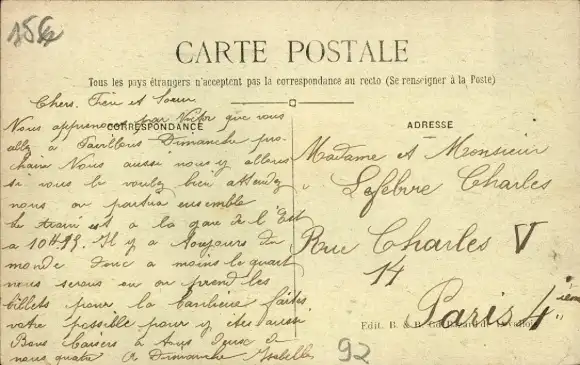 156
CARTE POSTALE
Tous les pays étrangers n'acceptent pas la correspondance au recto (Se renseigner à la Poste)
CORRESPONDANCE
ADRESSE
Chers. Frère et Soeur.
Nous apprenons par Victor que vous
allez à Dimanche pro-
chain Nous aussi nous y allons
si vous le voulez bien attendez
nous on partira ensemble
Le train est a la gare de l'Est
a 10H Il y a toujours du
monde donc a moins le quart
nous serons ou on prend les
billets pour la banlieue faites
votre possible pour y être aussi
Bons Baisers à tous deux de
nous quatre A Dimanche Isabelle
Madame et Monsieur
Lefebvre Charles
Rue Charles V
14
Paris 4 ième
Edit. B. & B.
92